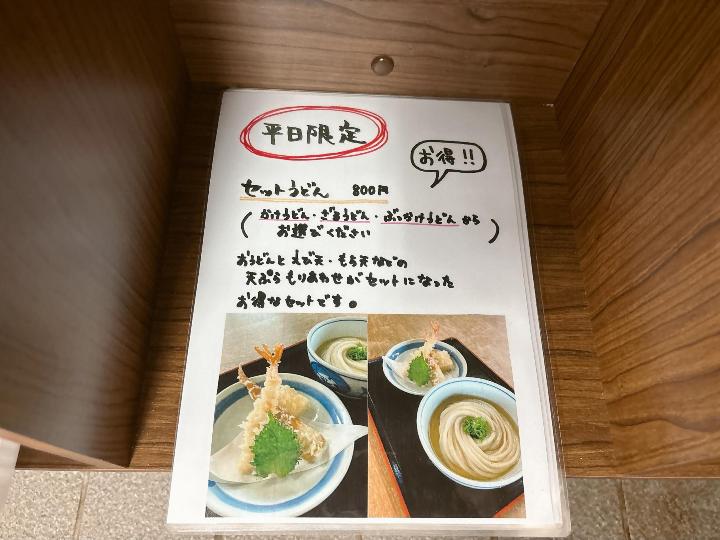 平日限定
お得!!
セットうどん 800円
(かけうどん・ざるうどん・ぶっかけうどんから
お選びください)
おうどんと えび天・もち天などの
天ぷら もりあわせがセットになった
お得なセットです。